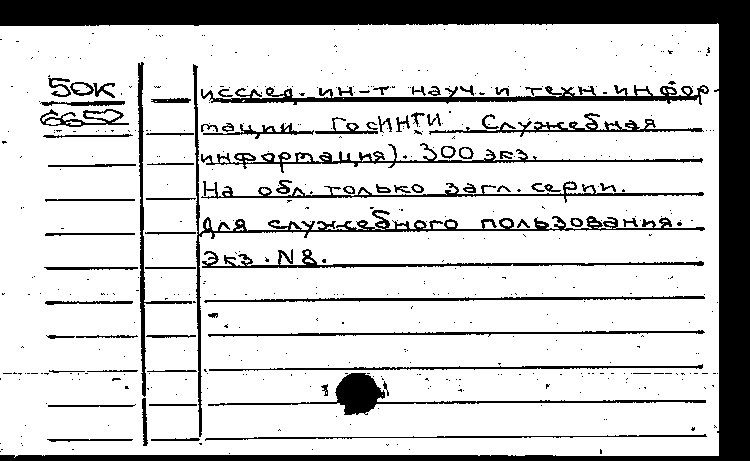 50К
6652
исслед. ин-т науч. и техн. инфор-
мации ГосИНТИ. Служебная
информация). 300 экз.
На обл. только загл. серии.
Для служебного пользования.
Экз. N8.